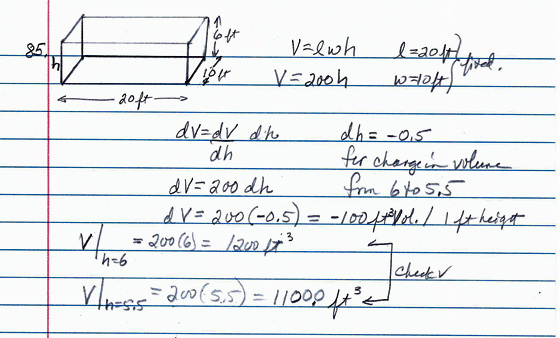 85.
h
6 ft
10 ft
20 ft
V = lwh l = 20 ft
V = 200h w = 10 ft
fixed.
dV = dV/dh dh dh = -0.5
for change in volume
from 6 to 5.5
dV = 200 dh
dV = 200(-0.5) = -100 ft³ Vol. / 1 ft height
V|h=6 = 200(6) = 1200 ft³
check √
V|h=5.5 = 200(5.5) = 1100.0 ft³